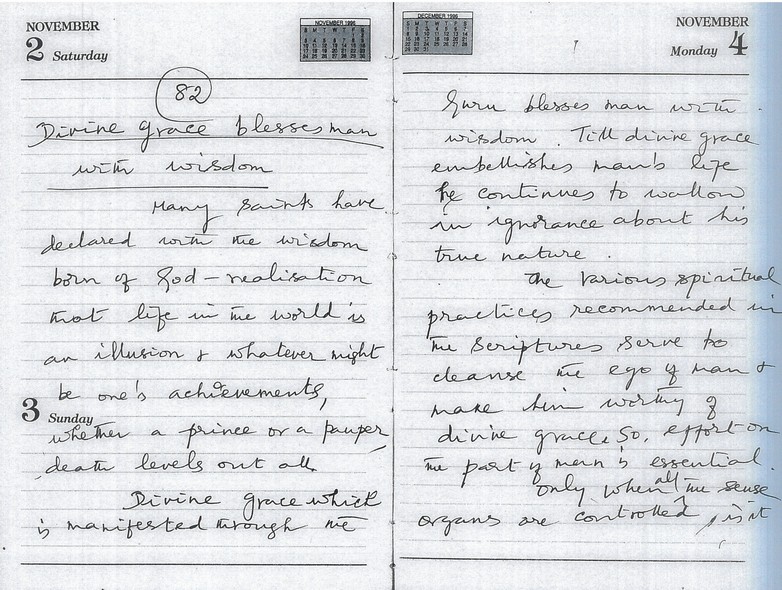 NOVEMBER
2 Saturday
NOVEMBER 1996
82
Divine grace blesses man
with wisdom
Many saints have
declared with the wisdom
born of God-realisation
that life in the world is
an illusion & whatever might
be one's achievements,
3 Sunday
whether a prince or a pauper,
death levels out all.
Divine grace which
is manifested through the
DECEMBER 1996
NOVEMBER
Monday 4
Guru blesses man with
wisdom. Till divine grace
embellishes man's life
he continues to wallow
in ignorance about his
true nature.
The various spiritual
practices recommended in
the scriptures serve to
cleanse the ego of man &
make him worthy of
divine grace. So, effort on
the part of man is essential.
Only when all the sense
organs are controlled, is it